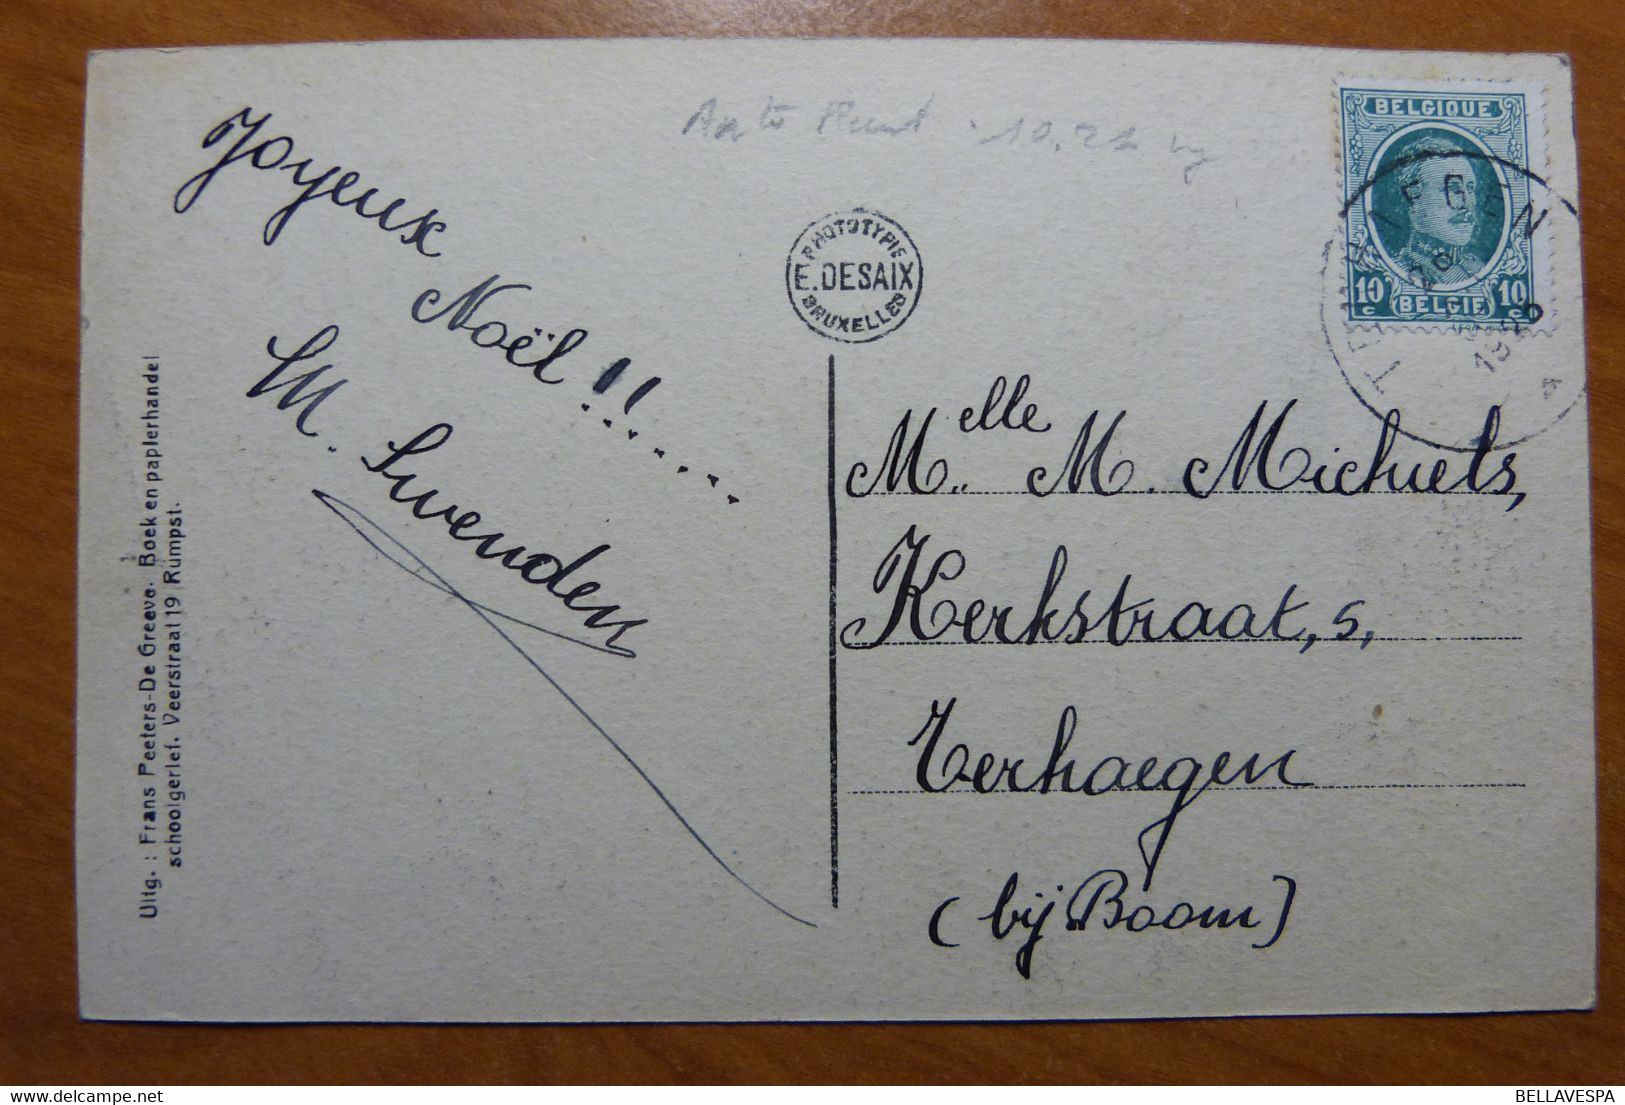 Joyeux
Noël !!.....
M. Swenden
Uitg. : Frans Peeters-De Greeve. Boek en papierhandel
schoolgerief. Veerstraat 19 Rumpst.
PHOTOTYPIE
E. DESAIX
BRUXELLES
BELGIQUE
10 c BELGIË 10 c
1926
Melle M. Michiels,
Kerkstraat, 5,
Terhaegen
(bij Boom)
BELLAVESPA